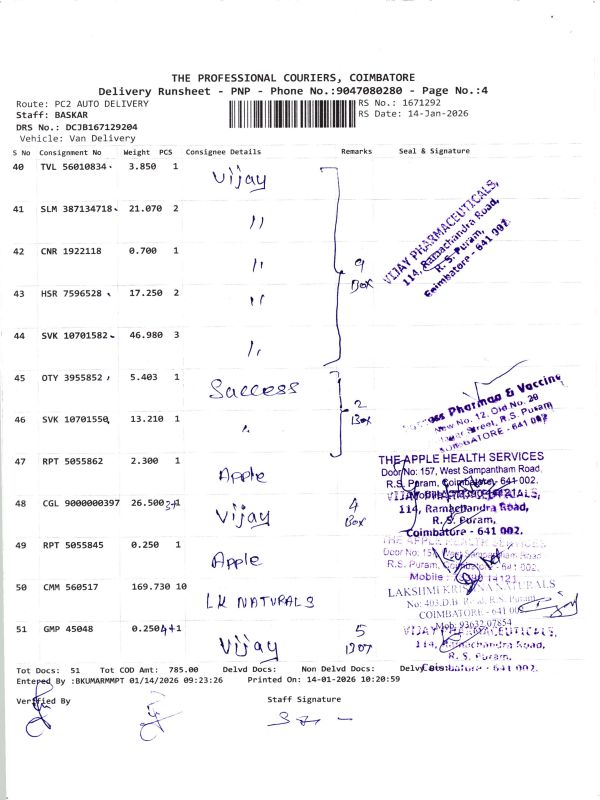 THE PROFESSIONAL COURIERS, COIMBATORE
Delivery Runsheet - PNP - Phone No.:9047080280 - Page No.:4
Route: PC2 AUTO DELIVERY
RS No.: 1671292
Staff: BASKAR
RS Date: 14-Jan-2026
DRS No.: DCJB167129204
Vehicle: Van Delivery
S No Consignment No Weight PCS Consignee Details Remarks Seal & Signature
40 TVL 56010834 3.850 1 Vijay
41 SLM 387134718 21.070 2 "
42 CNR 1922118 0.700 1 "
9 Box
43 HSR 7596528 17.250 2 "
44 SVK 10701582 46.980 3 "
VIJAY PHARMACEUTICALS,
114, Ramachandra Road,
R. S. Puram,
Coimbatore - 641 002.
45 OTY 3955852 5.403 1 Success
46 SVK 10701550 13.210 1 "
2 Box
Pharmaa & Vaccine
New No. 12, Old No. 20
Street, R.S. Puram
COIMBATORE - 641 002
47 RPT 5055862 2.300 1 Apple
THE APPLE HEALTH SERVICES
Door No: 157, West Sampantham Road,
R.S. Puram, Coimbatore - 641 002.
48 CGL 9000000397 26.500 3+1 Vijay 4 Box
VIJAY PHARMACEUTICALS,
114, Ramachandra Road,
R. S. Puram,
Coimbatore - 641 002.
49 RPT 5055845 0.250 1 Apple
THE APPLE HEALTH SERVICES
Door No: 157, West Sampantham Road
R.S. Puram, Coimbatore - 641 002.
Mobile :
50 CMM 560517 169.730 10 LK NATURALS
LAKSHMI KRISHNA NATURALS
No: 403, D.B. Road, R.S. Puram,
COIMBATORE - 641 002
Mob: 93632 07854
51 GMP 45048 0.250 4+1 Vijay 5 Box
VIJAY PHARMACEUTICALS,
114, Ramachandra Road,
R. S. Puram,
Coimbatore - 641 002.
Tot Docs: 51 Tot COD Amt: 785.00 Delvd Docs: Non Delvd Docs:
Entered By :BKUMARMMPT 01/14/2026 09:23:26 Printed On: 14-01-2026 10:20:59
Verified By
Staff Signature